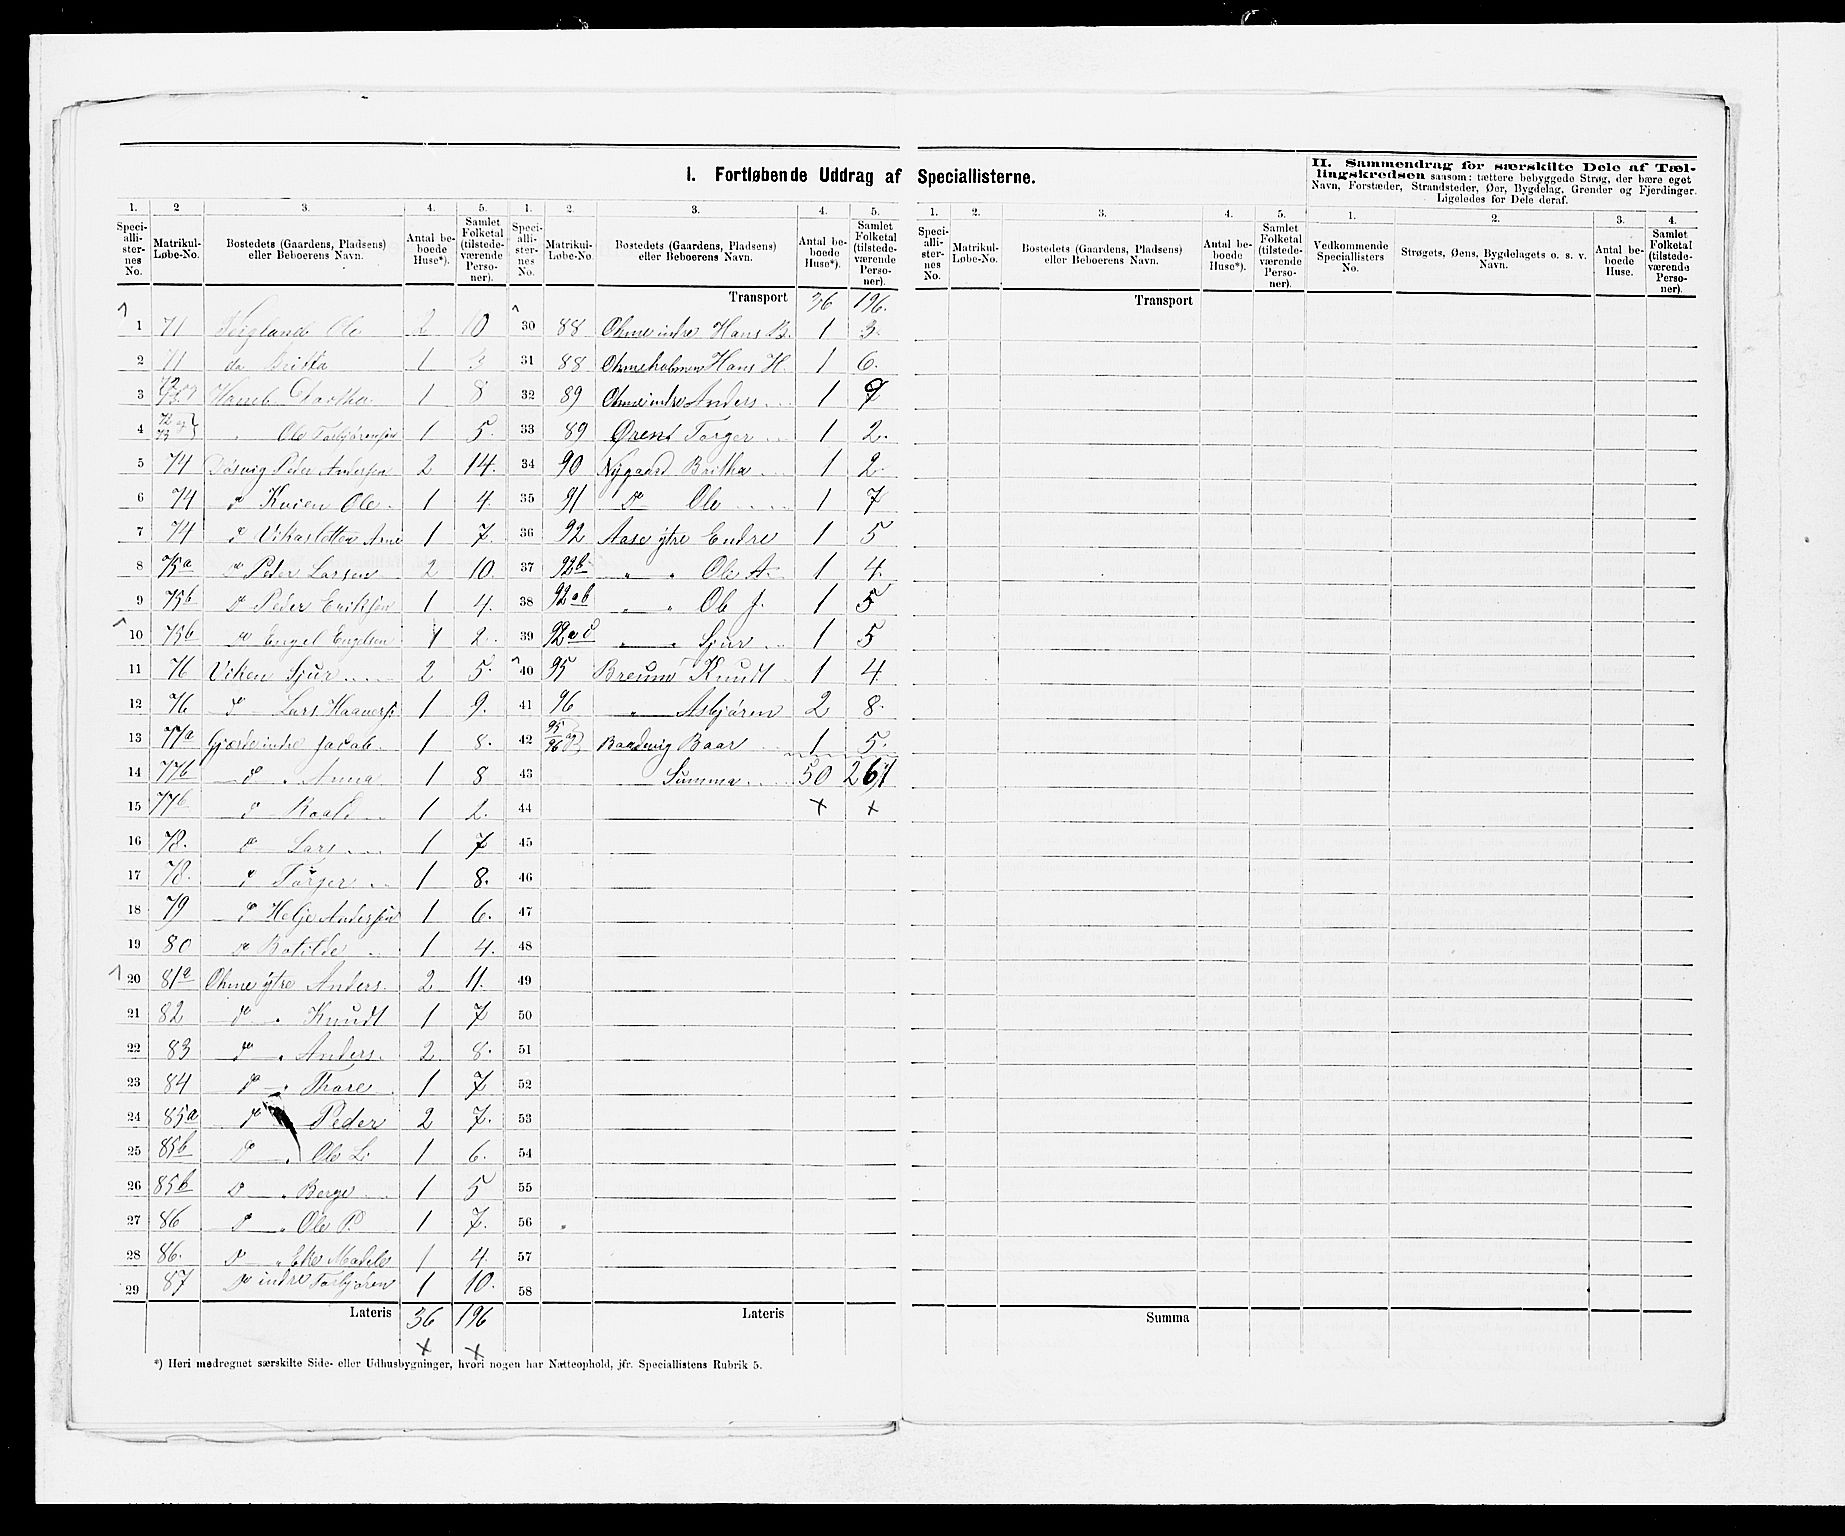 I. Fortløbende Uddrag af Speciallisterne.
II. Sammendrag for særskilte Dele af Tæl-
lingskredsen saasom: tættere bebyggede Strøg, der bære eget
Navn, Forstæder, Strandsteder, Øer, Bygdelag, Grender og Fjerdinger.
Ligeledes for Dele deraf.
1. 2 3. 4. 5. 1. 2. 3. 4. 5. 1. 2. 3. 4. 5. 1. 2. 3. 4.
Speciallisternes No. Matrikul-Løbe-No. Bostedets (Gaardens, Pladsens) eller Beboerens Navn. Antal beboede Huse*). Samlet Folketal (tilstedeværende Personer).
Speciallisternes No. Matrikul-Løbe-No. Bostedets (Gaardens, Pladsens) eller Beboerens Navn. Antal beboede Huse*). Samlet Folketal (tilstedeværende Personer).
Speciallisternes No. Matrikul-Løbe-No. Bostedets (Gaardens, Pladsens) eller Beboerens Navn. Antal beboede Huse*). Samlet Folketal (tilstedeværende Personer).
Vedkommende Speciallisters No. Strøgets, Øens, Bygdelagets o. s. v. Navn. Antal beboede Huse. Samlet Folketal (tilstedeværende Personer).
1 71 Ole 2 10
2 71 do Britta 1 3
3 1 8
4 72 og 73 " Ole Torbjörensen 1 5.
5 74 Peder Andersen 2 14.
6 74 do Kvien Ole 1 4.
7 74 do Vikasletten Arne 1 7.
8 75a do Peder Larsen 2 10.
9 75b do Peder Eriksen 1 4.
10 75b do Engel Engelsen 1 2.
11 76 Viken Sjur 2 5.
12 76 do Lars 1 9.
13 77a Gjærde indre Jacob 1 8.
14 77b do " Anna 1 8
15 77b do Roald 1 2.
16 78. do Lars 1 7
17 78. do Torger 1 8.
18 79 do Helje Andersen 1 6.
19 80 do Botilde 1 4.
20 81a Ohme ytre Anders. 2 11.
21 82 do " Knudt 1 7
22 83 do " Anders. 2 8.
23 84 do " Thore 1 7
24 85a do Peder 2 7.
25 85b do " Ole L. 1 6.
26 85b do " Berge 1 5
27 86 do " Ole P. 1 7.
28 86. do " Madele 1 4.
29 87 do indre Torbjören 1 10.
Lateris 36 196
Transport 36 196.
30 88 Ohme indre Hans B. 1 3.
31 88 Ohmeholmen Hans H. 1 6.
32 89 Ohme indre Anders 1 7
33 89 Torger 1 2.
34 90 Nygaard Britha 1 2.
35 91 do Ole 1 7
36 92 Aase ytre Endre 1 5
37 92b " " Ole A. 1 4.
38 92ab " " Ole J. 1 5
39 " " Sjur 1 5
40 95 Breum Knudt 1 4
41 96 " Asbjören 2 8.
42 95 og 96 Baadsvig Baar 1 5.
43 Summa 50 261
44
45
46
47
48
49
50
51
52
53
54
55
56
57
58
Lateris
Transport
Summa
*) Heri medregnet særskilte Side- eller Udhusbygninger, hvori nogen har Natteophold, jfr. Speciallistens Rubrik 5.